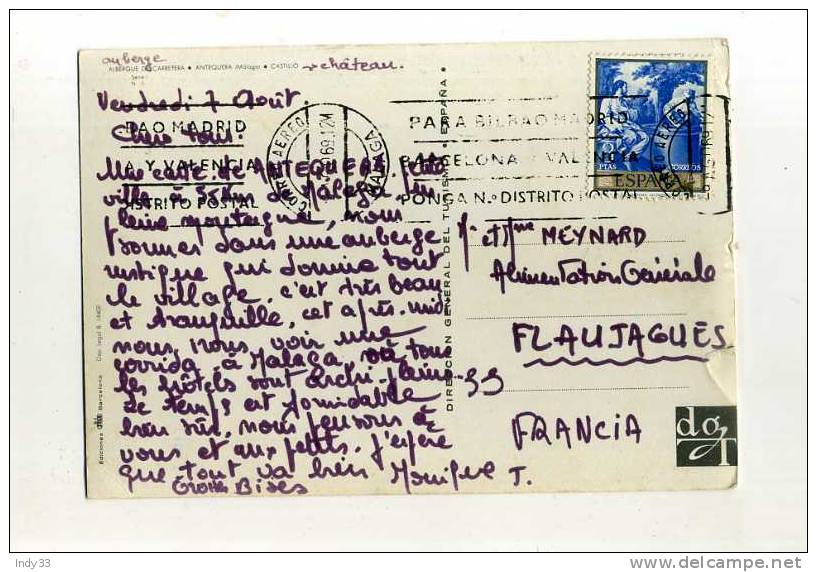 auberge
ALBERGUE DE CARRETERA • ANTEQUERA (Málaga) • CASTILLO → château.
Serie I
Vendredi 7 Août.
Chers tous.
Une carte de ANTEQUERA, petite
ville à 55 Km de Málaga en
pleine montagne, nous
sommes dans une auberge
rustique qui domine tout
le village, c'est très beau
et tranquille, cet après-midi
nous, nous voir une
corrida à Malaga, où tous
les hôtels sont archi-pleins
Le temps est formidable
bien sûr, nous pensons à
vous et aux petits. J'espère
que tout va bien
Grosses Bises
T.
BAO MADRID
A Y VALENCIA
DISTRITO POSTAL
CORREO AEREO
69 12M
MALAGA
PARA BILBAO MADRID
BARCELONA Y VALENCIA
PONGA N.º DISTRITO POSTAL
PTAS
CORREOS
ESPAÑA
DIRECCION GENERAL DEL TURISMO • ESPAÑA •
Mr et Mme MEYNARD
Alimentation Générale
FLAUJAGUES
33
FRANCIA
dgT
Ediciones Barcelona Dep. legal B.
Indy33
delcampe.net